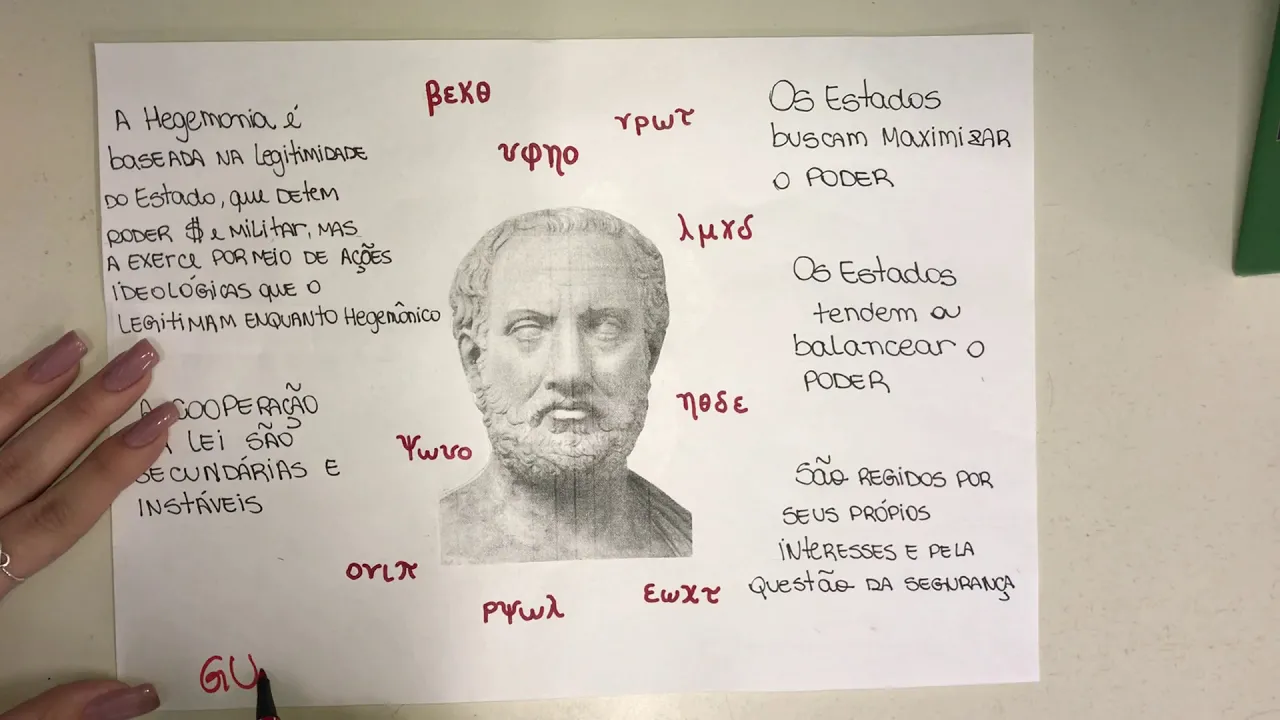 A Hegemonia é
BASEADA NA Legitimidade
DO Estado, que DETEM
PODER $ e MILITAR, MAS
A EXERCE POR MEIO DE AÇÕES
IDEOLÓGICAS QUE O
LEGITIMAM ENQUANTO Hegemônico
COOPERAÇÃO
LEI SÃO
SECUNDÁRIAS E
INSTÁVEIS
βεκθ
νρωτ
υφηο
λμχδ
ηθδε
ψωνο
ονιπ
ρψωλ
εωχτ
Os Estados
buscam Maximizar
o PODER
Os Estados
tendem a
balancear o
PODER
São REGIDOS POR
SEUS PRÓPIOS
INTERESSES E PELA
QUESTÃO DA SEGURANÇA
GU